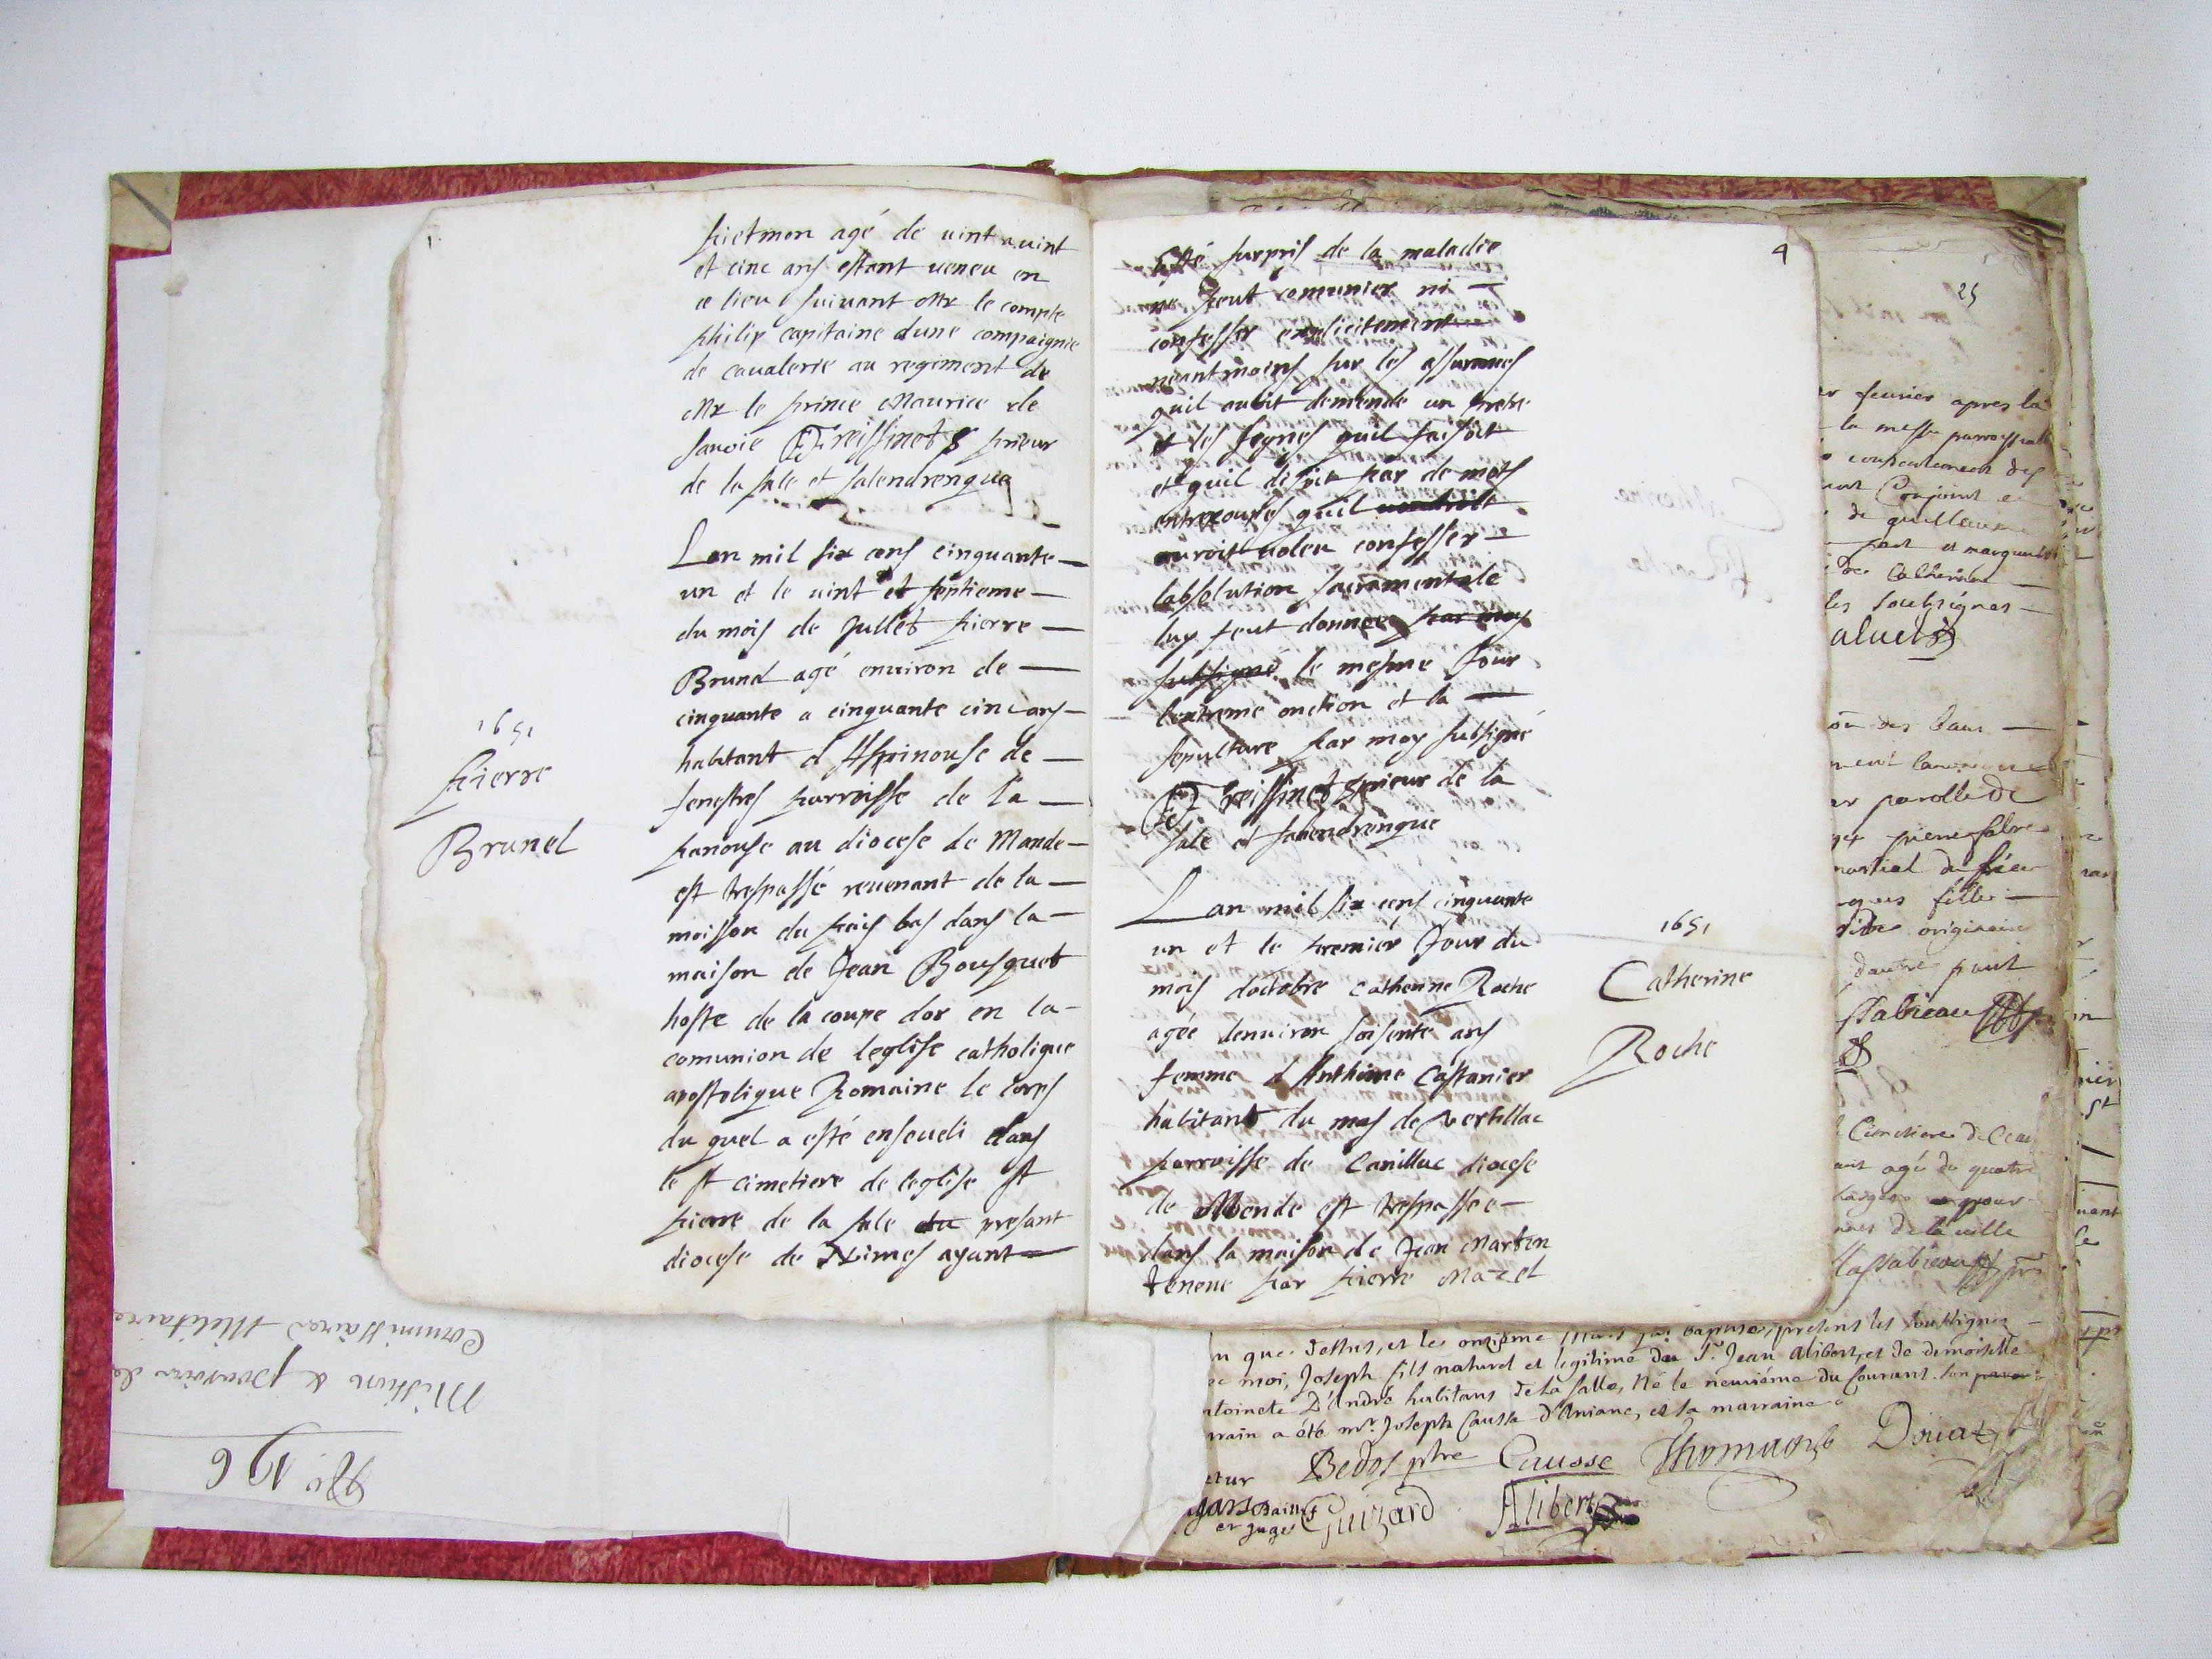 pietmon agé de uint a uint
et cinc ans estant ueneu en
ce lieu suiuant Mr le compte
philip capitaine dune compaignie
de caualerie au regiment de
Mr le prince Maurice de
sauoie Freissinet prieur
de la sale et salendrenque
Lan mil six cens cinquante
un et le uint et septieme
du mois de Jullet pierre
Brunel agé enuiron de
cinquante a cinquante cinc ans
habitant d Aspinouse de
fenestres parroisse de la
panouse au diocese de Mande
est trespassé reuenant de la
moisson du pais bas dans la
maison de Jean Bousquet
hoste de la coupe dor en la
comunion de leglise catholique
apostolique Romaine le corps
du quel a esté enseueli dans
le st cimetiere de leglise st
pierre de la sale du presant
diocese de Nimes ayant
1651
pierre
Brunel
4
esté surpris de la maladie
ne peut comunier ni
confesser explicitement
neantmoins sur les assurances
quil auoit demende un pretre
et les segnes quil faisoit
et quil disoit par de mots
entrecoupes quil uoudroit
auroit uoleu confesser
labsolution sacramentale
luy feut donnee par moy
subsigné le mesme Jour
lextreme onction et la
sepulture par moy subsigné
Freissinet prieur de la
sale et salendrenque
Lan mil six cens cinquante
un et le premier Jour du
mois doctobre catherine Roche
agée denuiron soisente ans
femme d Anthoine Castanier
habitant du mas de vertillac
parroisse de Canillac diocese
de Mende est trespassee
dans la maison de Jean Marten
teneue par pierre Mazel
1651
Catherine
Roche
25
er feurier apres la
la messe parroissialle
Conjoint et
de guilleaume
part et marguerite
Catherine
les soubsignes
ou des bans
er parolle de
pierre fabre
martial du
fille
originaire
dautre part
Cimetiere de Ceans
ant agé de quatre
de la uille
n que dessus, et le onzieme
baptisé, présens les soussignez
e moi, Joseph fils naturel et legitime du Sr Jean Alibert, et de demoiselle
ntoinete D'André habitans de la salle, Né le neuviéme du Courant. son
rrain a été mr Joseph Causse d'Aniane, et la marraine
Bedos ptre Causse Thomuorb Douaz
Guizard Alibert
er juge
No. 196
Mission & pouvoirs de
Commissaires Militaires